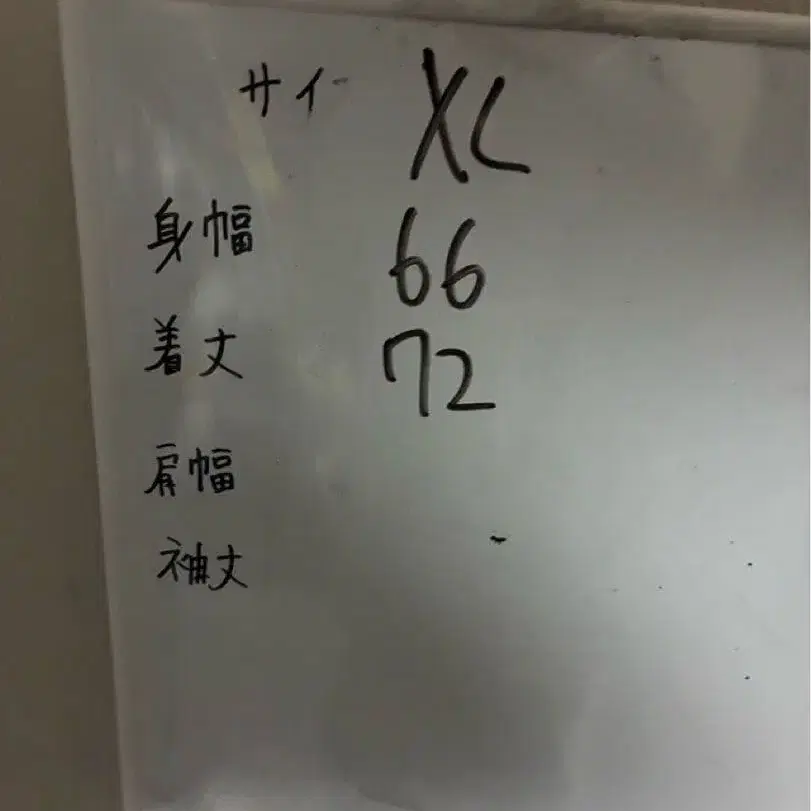 サイ XL
身幅 66
着丈 72
肩幅
袖丈